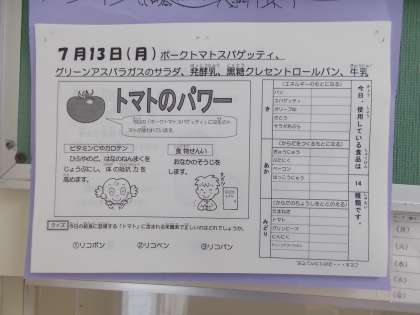 7月13日(月) ポークトマトスパゲッティ、
グリーンアスパラガスのサラダ、発酵乳、黒糖クレセントロールパン、牛乳
トマトのパワー
今日の「ポークトマトスパゲッティ」には
トマトが使われています。
ビタミンCやカロテン
ひふやのど、はなのねんまくを
じょうぶにし、体の抵抗力を
高めます。
食物せんい
おなかのそうじを
します。
クイズ
今日の給食に登場する「トマト」に含まれる栄養素で正しいのはどれでしょうか。
①リコポン
②リコペン
③リコパン
今日、使用している食品は
14
種類です。
き
(エネルギーのもとになる)
パン
スパゲッティ
オリーブ油
さとう
サラダあぶら
あか
(からだをつくるもとになる)
ぎゅうにゅう
ぶたにく
ベーコン
はっこうにゅう
みどり
(からだのちょうしをととのえる)
たまねぎ
トマト
グリンピース
にんにく
(月)